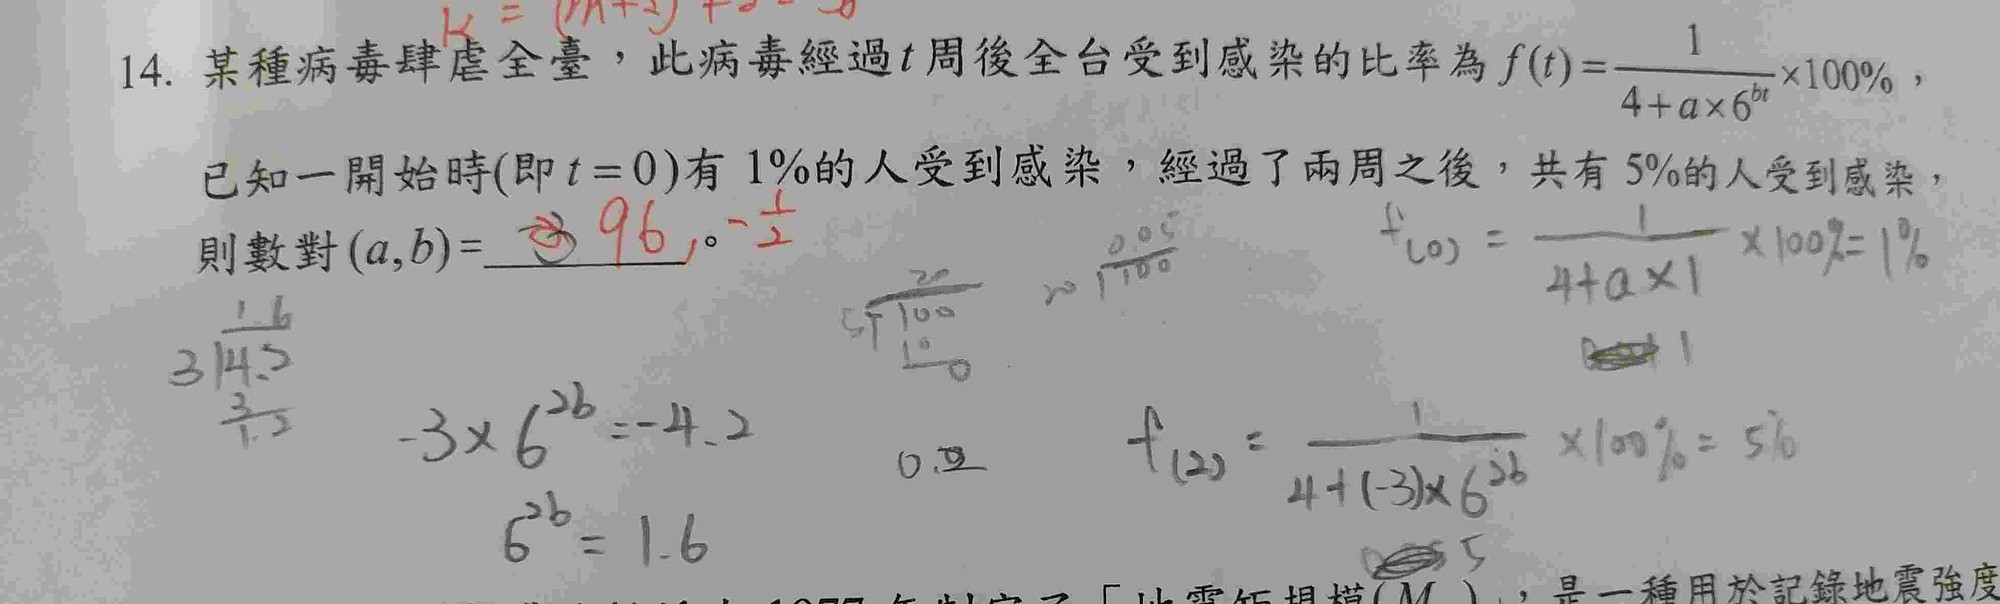 K = (
14. 某種病毒肆虐全臺，此病毒經過t周後全台受到感染的比率為 f(t)=1/(4+a×6^{bt})×100%，
已知一開始時(即 t=0)有 1%的人受到感染，經過了兩周之後，共有 5%的人受到感染，
則數對(a,b)= 96, 。-1/2
f(0) = 1/(4+a×1) ×100%=1%
0.05
20 100
20
5 100
10
0
1.6
3 4.2
3
1.2
1
-3×6^{2b}=-4.2
0.2
f(2) = 1/(4+(-3)×6^{2b}) ×100%= 5%
6^{2b} = 1.6
5
「地震矩規模(M )」，是一種用於記錄地震強度